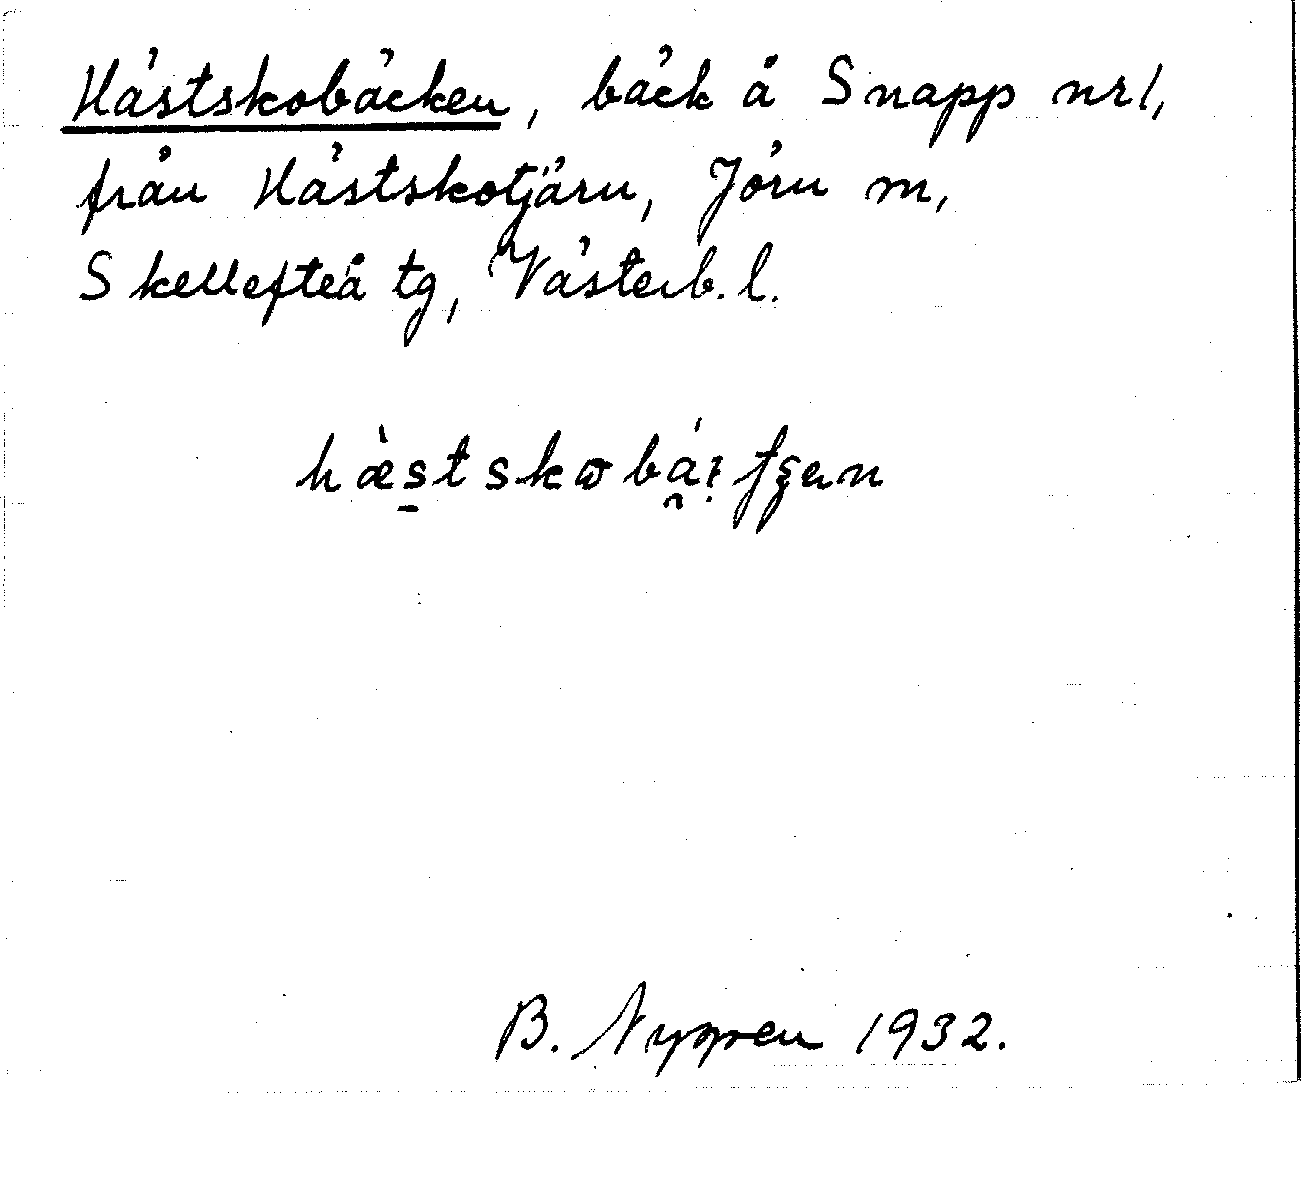 Hästskobäcken, bäck å Snapp nr 1,
från Hästskotjärn, Jörn sn,
Skellefteå tg, Västerb. l.
B. Nygren 1932.